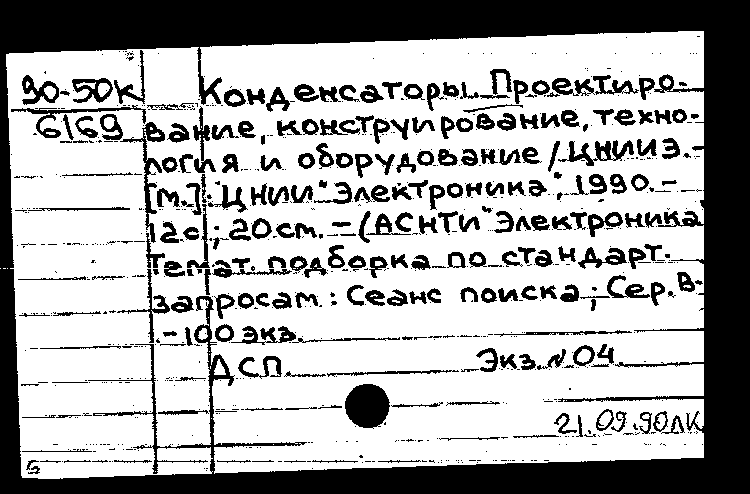 90-50к Конденсаторы. Проектиро-
6169 вание, конструирование, техно-
логия и оборудование / ЦНИИЭ. -
[м.]: ЦНИИ "Электроника", 1990. -
12с.; 20см. - (АСНТИ "Электроника"
Темат. подборка по стандарт.
запросам: Сеанс поиска; Сер. В-
. - 100 экз.
ДСП. Экз. № 04.
21.09.90ЛК